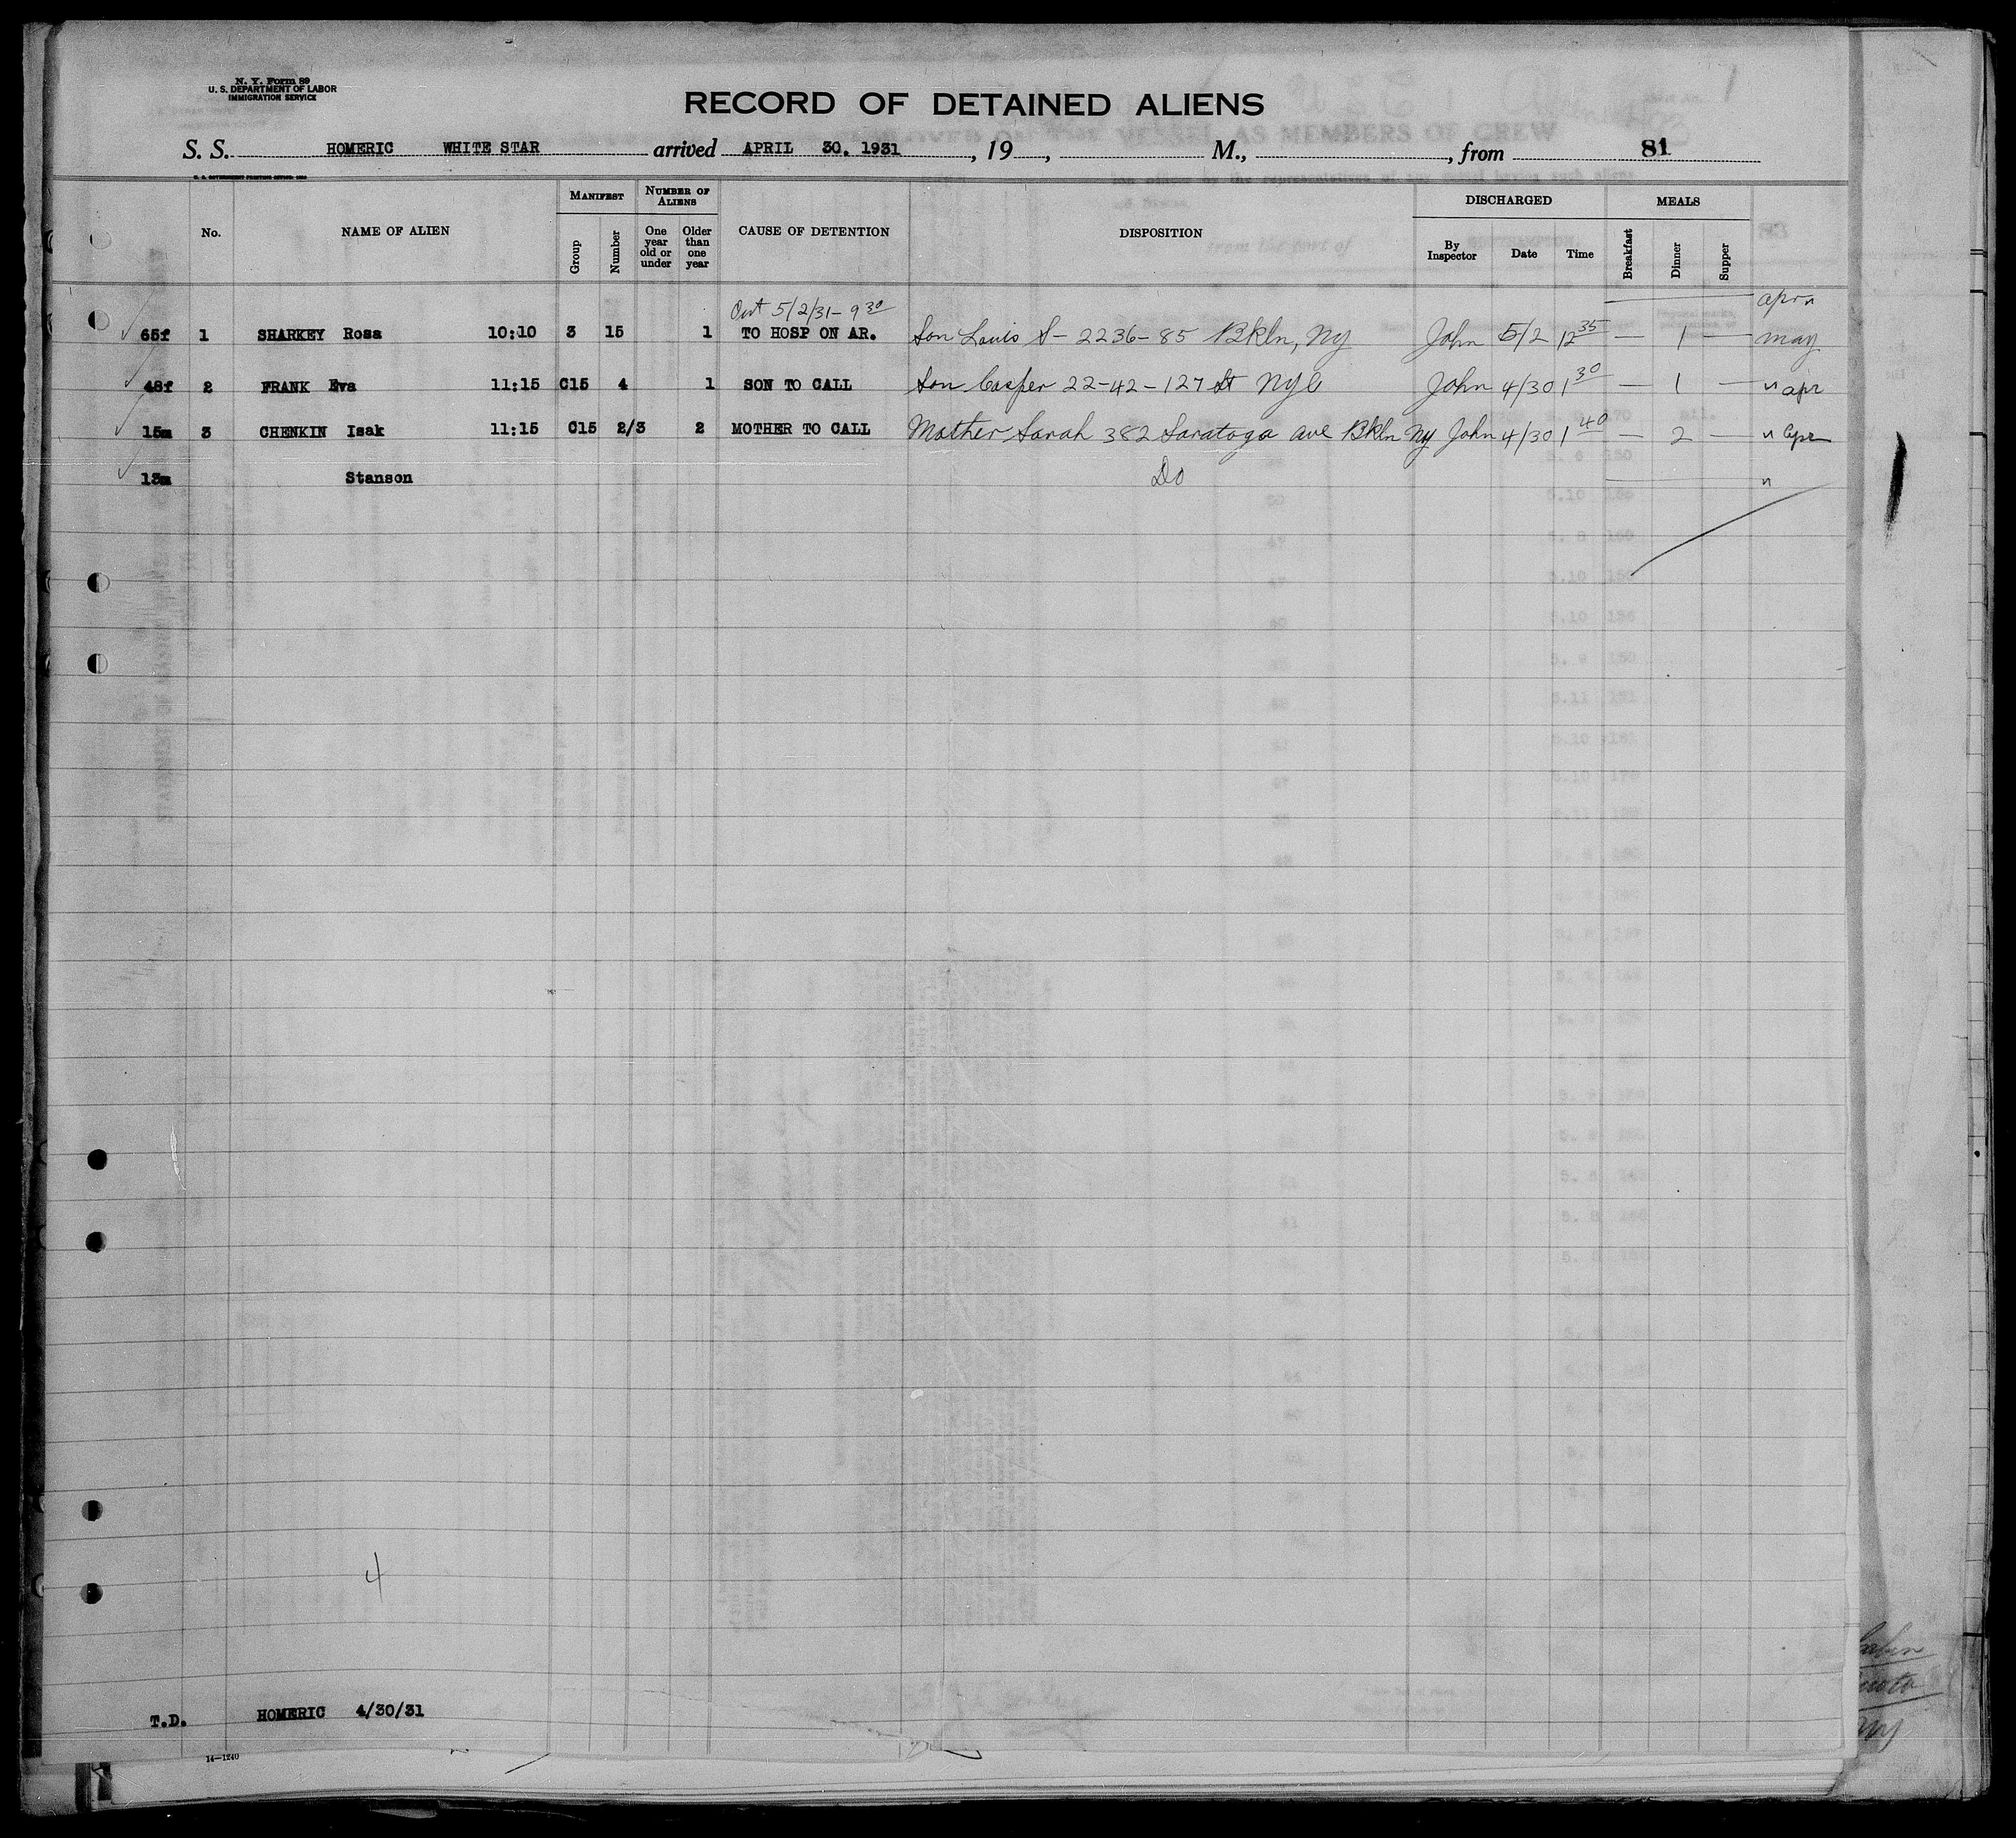 N. Y. Form 89
U. S. DEPARTMENT OF LABOR
IMMIGRATION SERVICE
RECORD OF DETAINED ALIENS
S. S. HOMERIC WHITE STAR arrived APRIL 30, 1931, 19 , M., , from 81
No. NAME OF ALIEN MANIFEST Group Number NUMBER OF ALIENS One year old or under Older than one year CAUSE OF DETENTION DISPOSITION DISCHARGED By Inspector Date Time MEALS Breakfast Dinner Supper
Out 5/2/31 - 9 30
65f 1 SHARKEY Rosa 10:10 3 15 1 TO HOSP ON AR. Son Louis S - 2236 - 85 Bkln, Ny John 5/2 12 35 — 1 — may
48f 2 FRANK Eva 11:15 C15 4 1 SON TO CALL Son Casper 22-42-127 St NYC John 4/30 1 30 — 1 — " apr
15m 3 CHENKIN Isak 11:15 C15 2/3 2 MOTHER TO CALL Mother Sarah 382 Saratoga ave Bkln Ny John 4/30 1 40 — 2 — " Apr
13m Stanson Do "
4
T.D. HOMERIC 4/30/31
14—1240